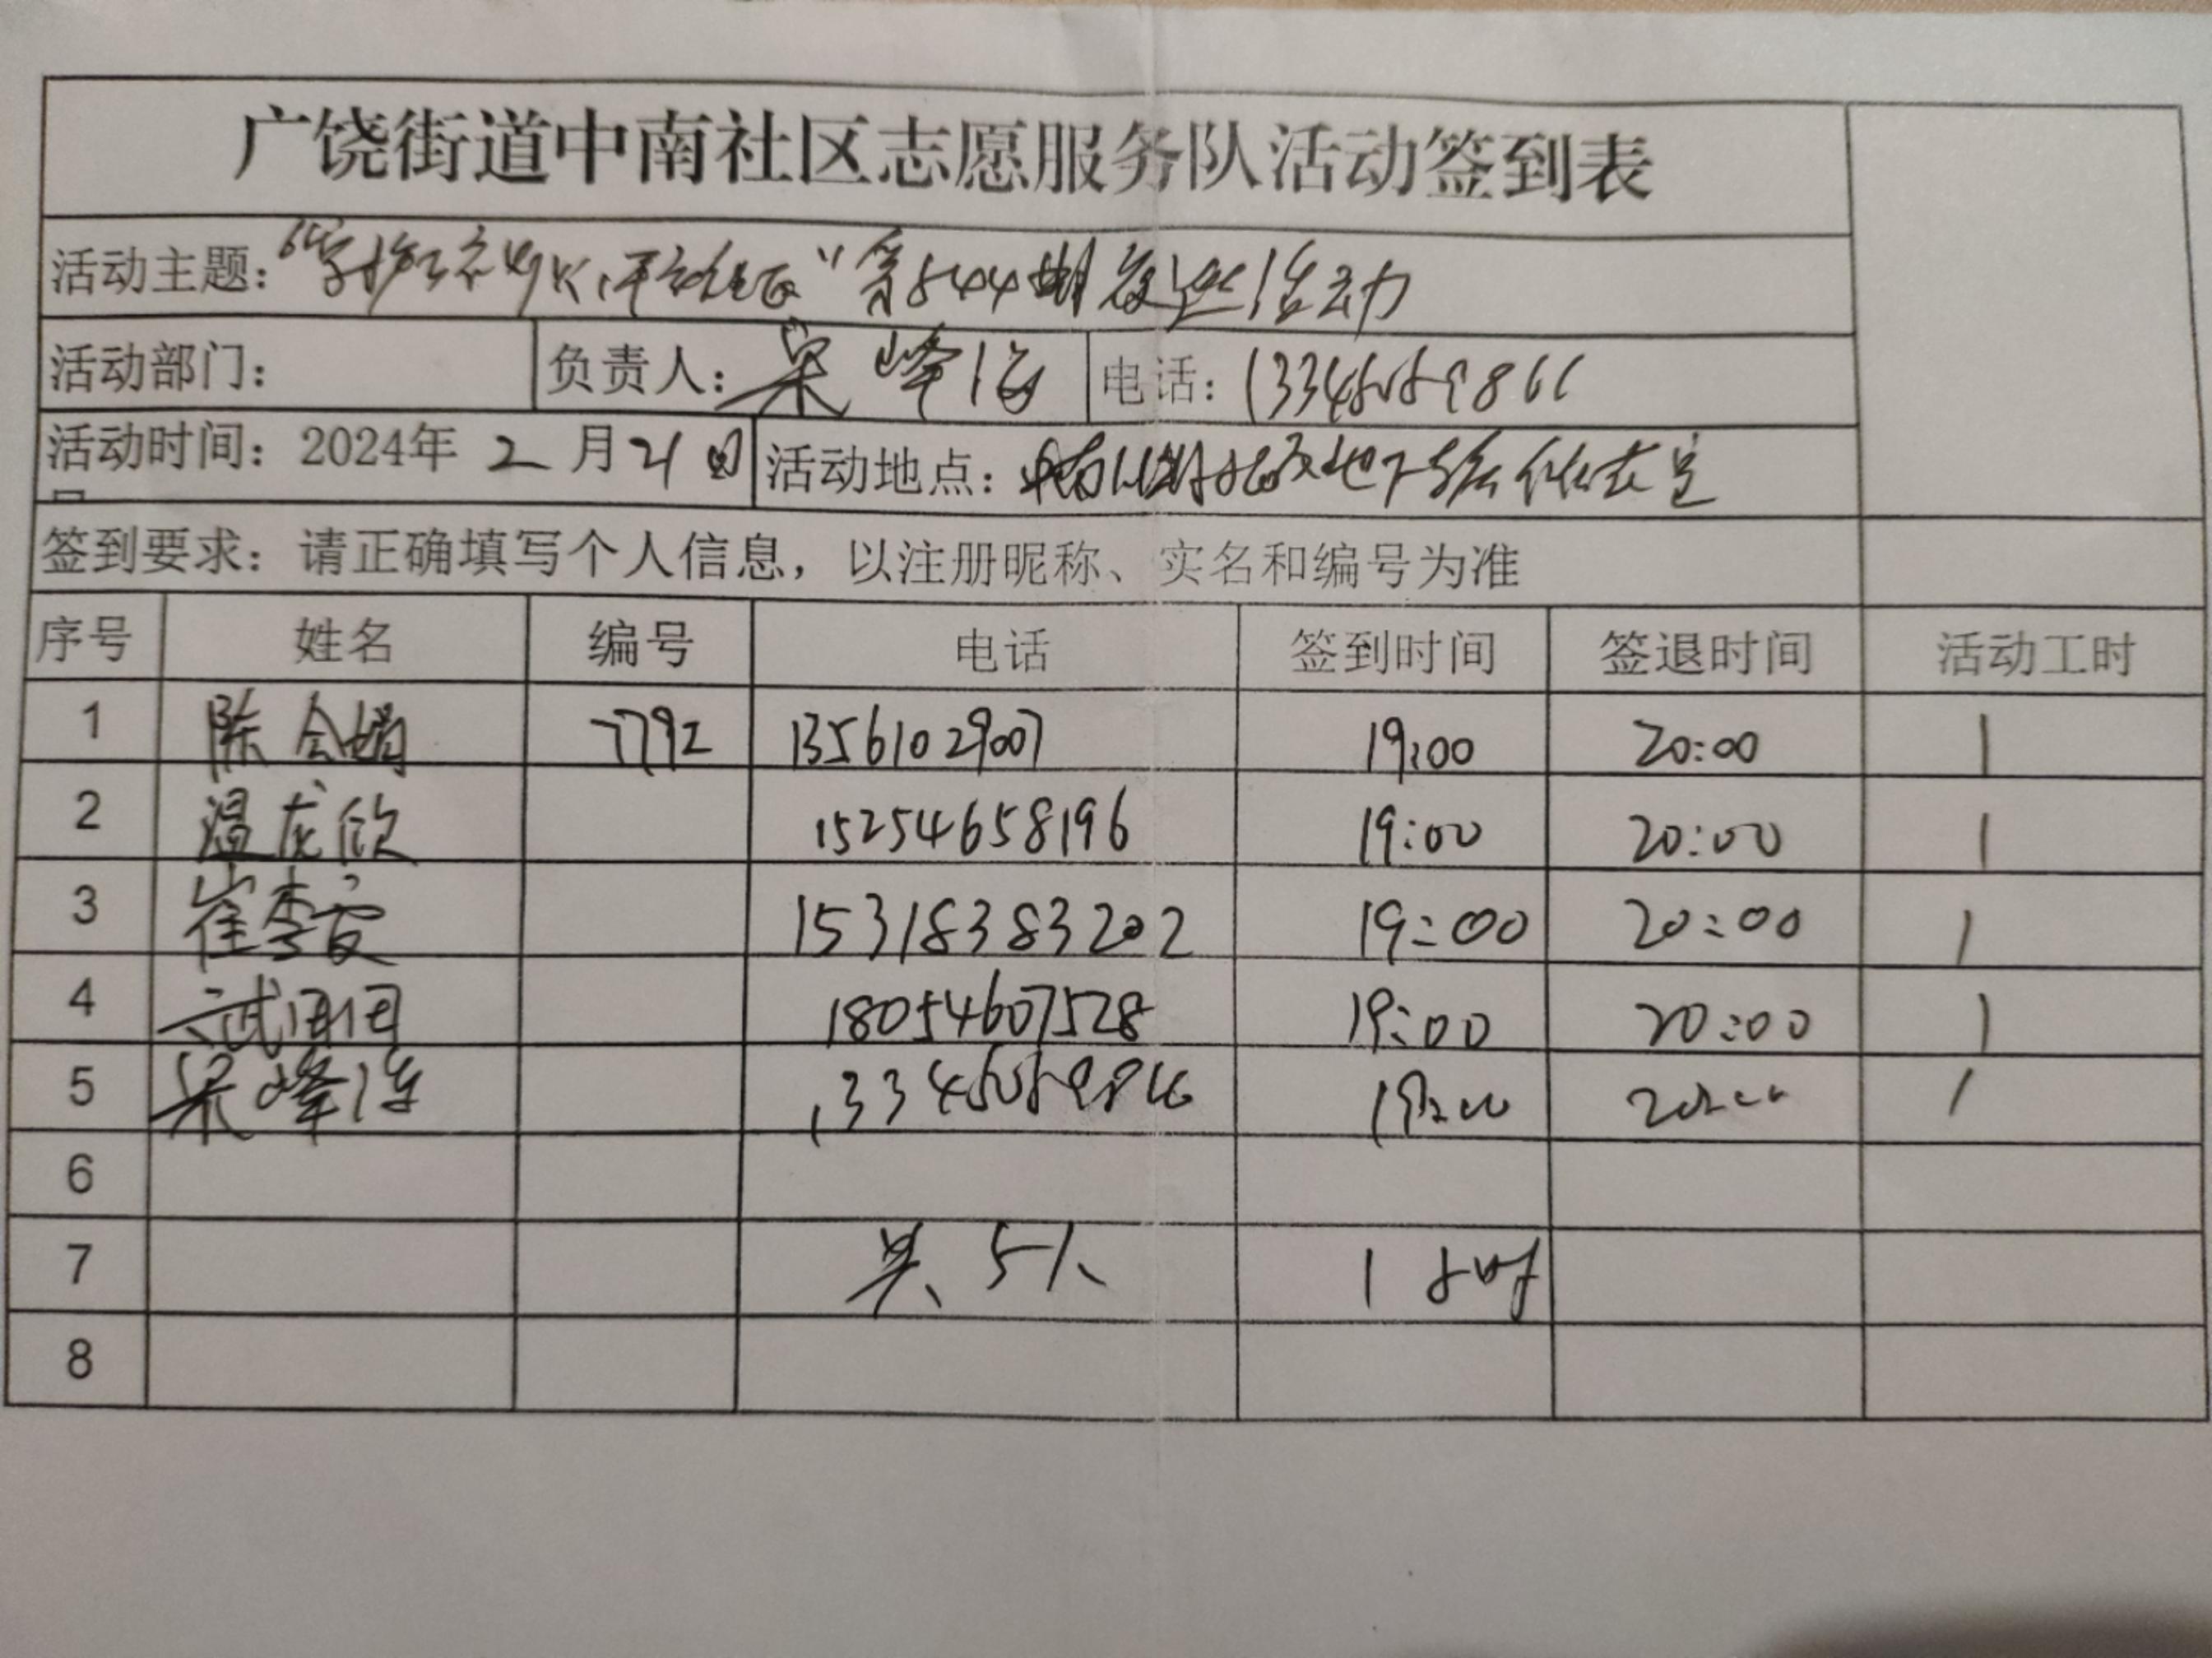 广饶街道中南社区志愿服务队活动签到表
活动主题：" "第544期夜巡活动
活动部门： 负责人：宋峰 电话：13345059866
活动时间：2024年2月21日 活动地点：
签到要求：请正确填写个人信息，以注册昵称、实名和编号为准
序号 姓名 编号 电话 签到时间 签退时间 活动工时
1 陈会娟 7792 13561029007 19:00 20:00 1
2 温龙欣 15254658196 19:00 20:00 1
3 崔李霞 15318383202 19:00 20:00 1
4 武 18054607528 19:00 20:00 1
5 宋峰 19:00 20:00 1
6
7 共5人 1小时
8